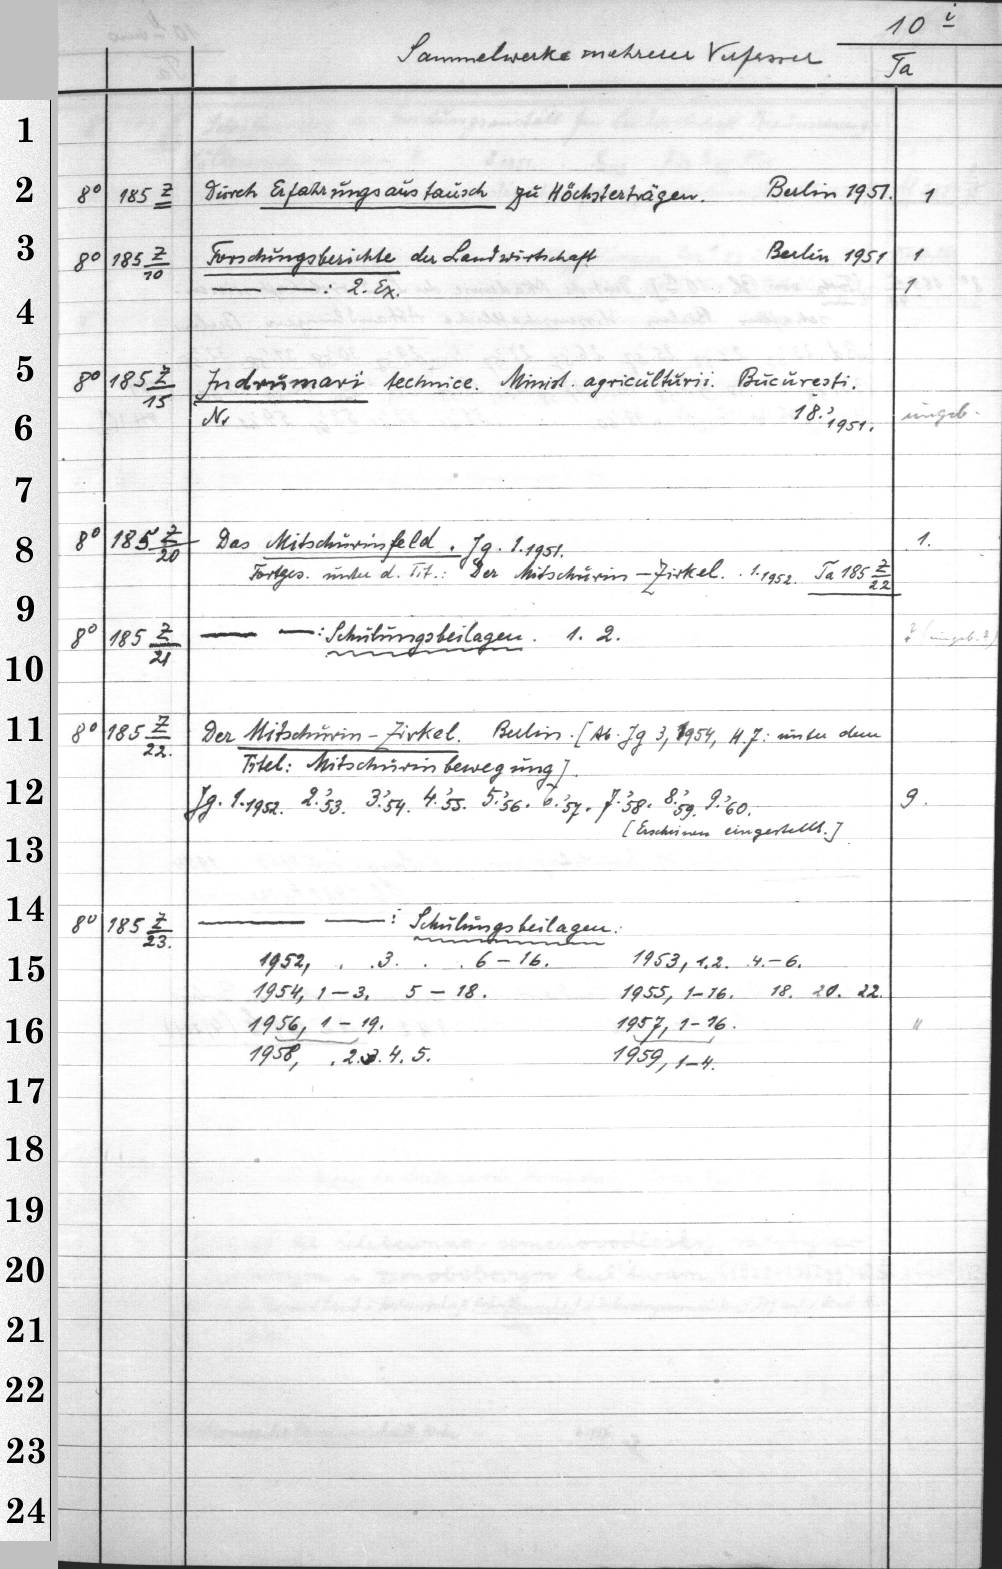 10 i
Sammelwerke mehrerer Verfasser
Ta
1
2 8° 185 Z Durch Erfahrungsaustausch zu Höchsterträgen. Berlin 1951. 1
3 8° 185 Z/10 Forschungsberichte der Landwirtschaft Berlin 1951 1
— — : 2. Ex. 1
4
5 8° 185 Z/15 Indrumari technice. Minist. agriculturii. Bucuresti.
6 Nr 18.' 1951. ungeb.
7
8 8° 185 Z/20 Das Mitschurinfeld. Jg. 1.1951. 1.
Fortges. unter d. Tit.: Der Mitschurin-Zirkel. 1.1952. Ta 185 Z/22
9
8° 185 Z/21 — — : Schulungsbeilagen. 1. 2. (ungeb. 2)
10
11 8° 185 Z/22. Der Mitschurin-Zirkel. Berlin. [Ab Jg 3, 1954, H. 7: unter dem
Titel: Mitschurinbewegung]
12 Jg. 1.1952. 2.'53. 3.'54. 4.'55. 5.'56. 6.'57. 7.'58. 8.'59. 9.'60. 9.
[Erscheinen eingestellt.]
13
14 8° 185 Z/23. — — : Schulungsbeilagen:
15 1952, . .3. . . 6-16. 1953, 1.2. 4.-6.
1954, 1-3. 5-18. 1955, 1-16. 18. 20. 22.
16 1956, 1-19. 1957, 1-16. "
1958, . 2.3.4.5. 1959, 1-4.
17
18
19
20
21
22
23
24